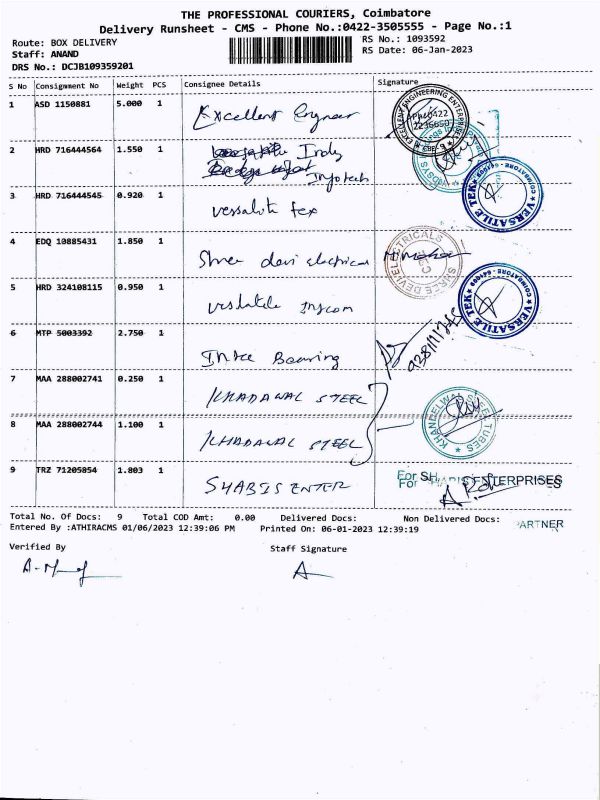 THE PROFESSIONAL COURIERS, Coimbatore
Delivery Runsheet - CMS - Phone No.:0422-3505555 - Page No.:1
Route: BOX DELIVERY
RS No.: 1093592
Staff: ANAND
RS Date: 06-Jan-2023
DRS No.: DCJB109359201
S No Consignment No Weight PCS Consignee Details Signature
1 ASD 1150881 5.000 1 Excellent Engneer
EXCELLENT ENGINEERING ENTERPRISES
Ph:0422
2236650
2 HRD 716444564 1.550 1 Indy
Infotech
3 HRD 716444545 0.920 1 versalite tex
VERSATILE TEK
COIMBATORE - 641009
4 EDQ 10885431 1.850 1 Shree devi electrical
SHREE DEVI ELECTRICALS
5 HRD 324108115 0.950 1
VERSATILE TEK
COIMBATORE - 641009
6 MTP 5003392 2.750 1 Bearing
7 MAA 288002741 0.250 1 KHADAWAL STEEL
8 MAA 288002744 1.100 1 KHADAWAL STEEL
KHANDELWAL STEEL TUBES
9 TRZ 71205854 1.803 1 SHABIS ENTER
For SHABIS ENTERPRISES
PARTNER
Total No. Of Docs: 9 Total COD Amt: 0.00 Delivered Docs: Non Delivered Docs:
Entered By :ATHIRACMS 01/06/2023 12:39:06 PM Printed On: 06-01-2023 12:39:19
Verified By
Staff Signature
A